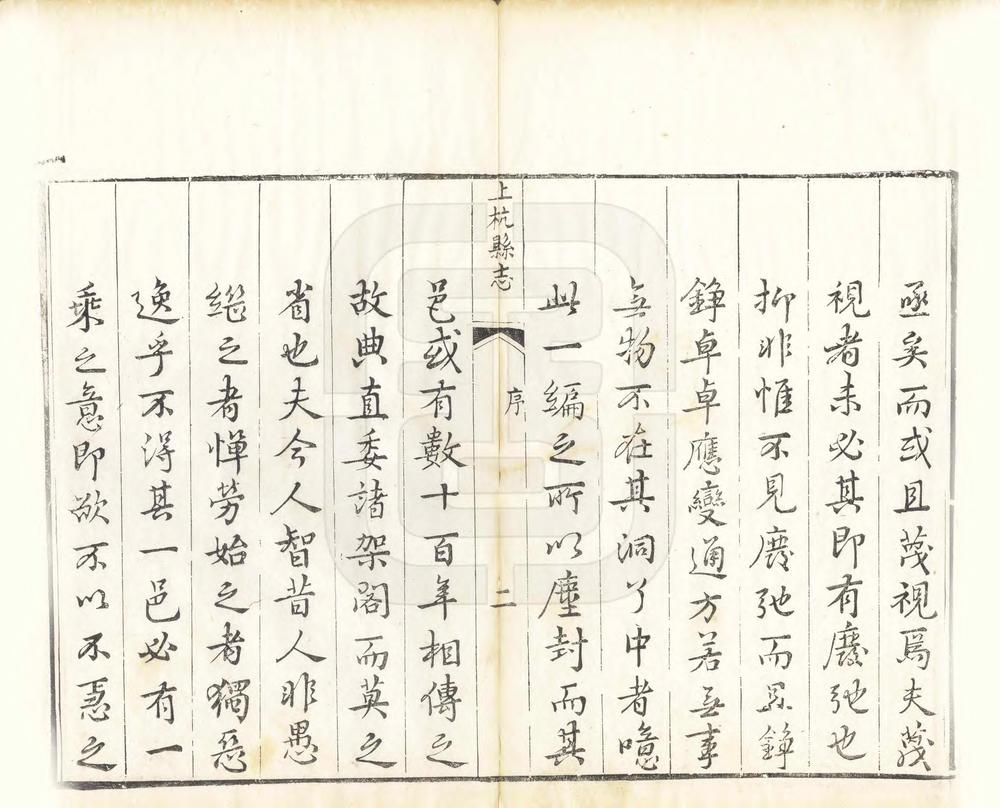 亟矣而或且蔑視焉夫蔑
視者未必其即有廢弛也
抑非惟不見廢弛而且錚
錚卓卓應變通方若無事
無物不在其洞了中者噫
此一編之所以塵封而其
上杭縣志
序
二
邑或有數十百年相傳之
故典直委諸架閣而莫之
省也夫今人智昔人非愚
繼之者憚勞始之者獨惡
逸乎不得其一邑必有一
乘之意即欲不以不急之